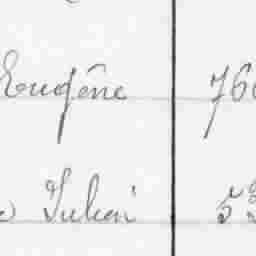 Eugène 76
Julien 5